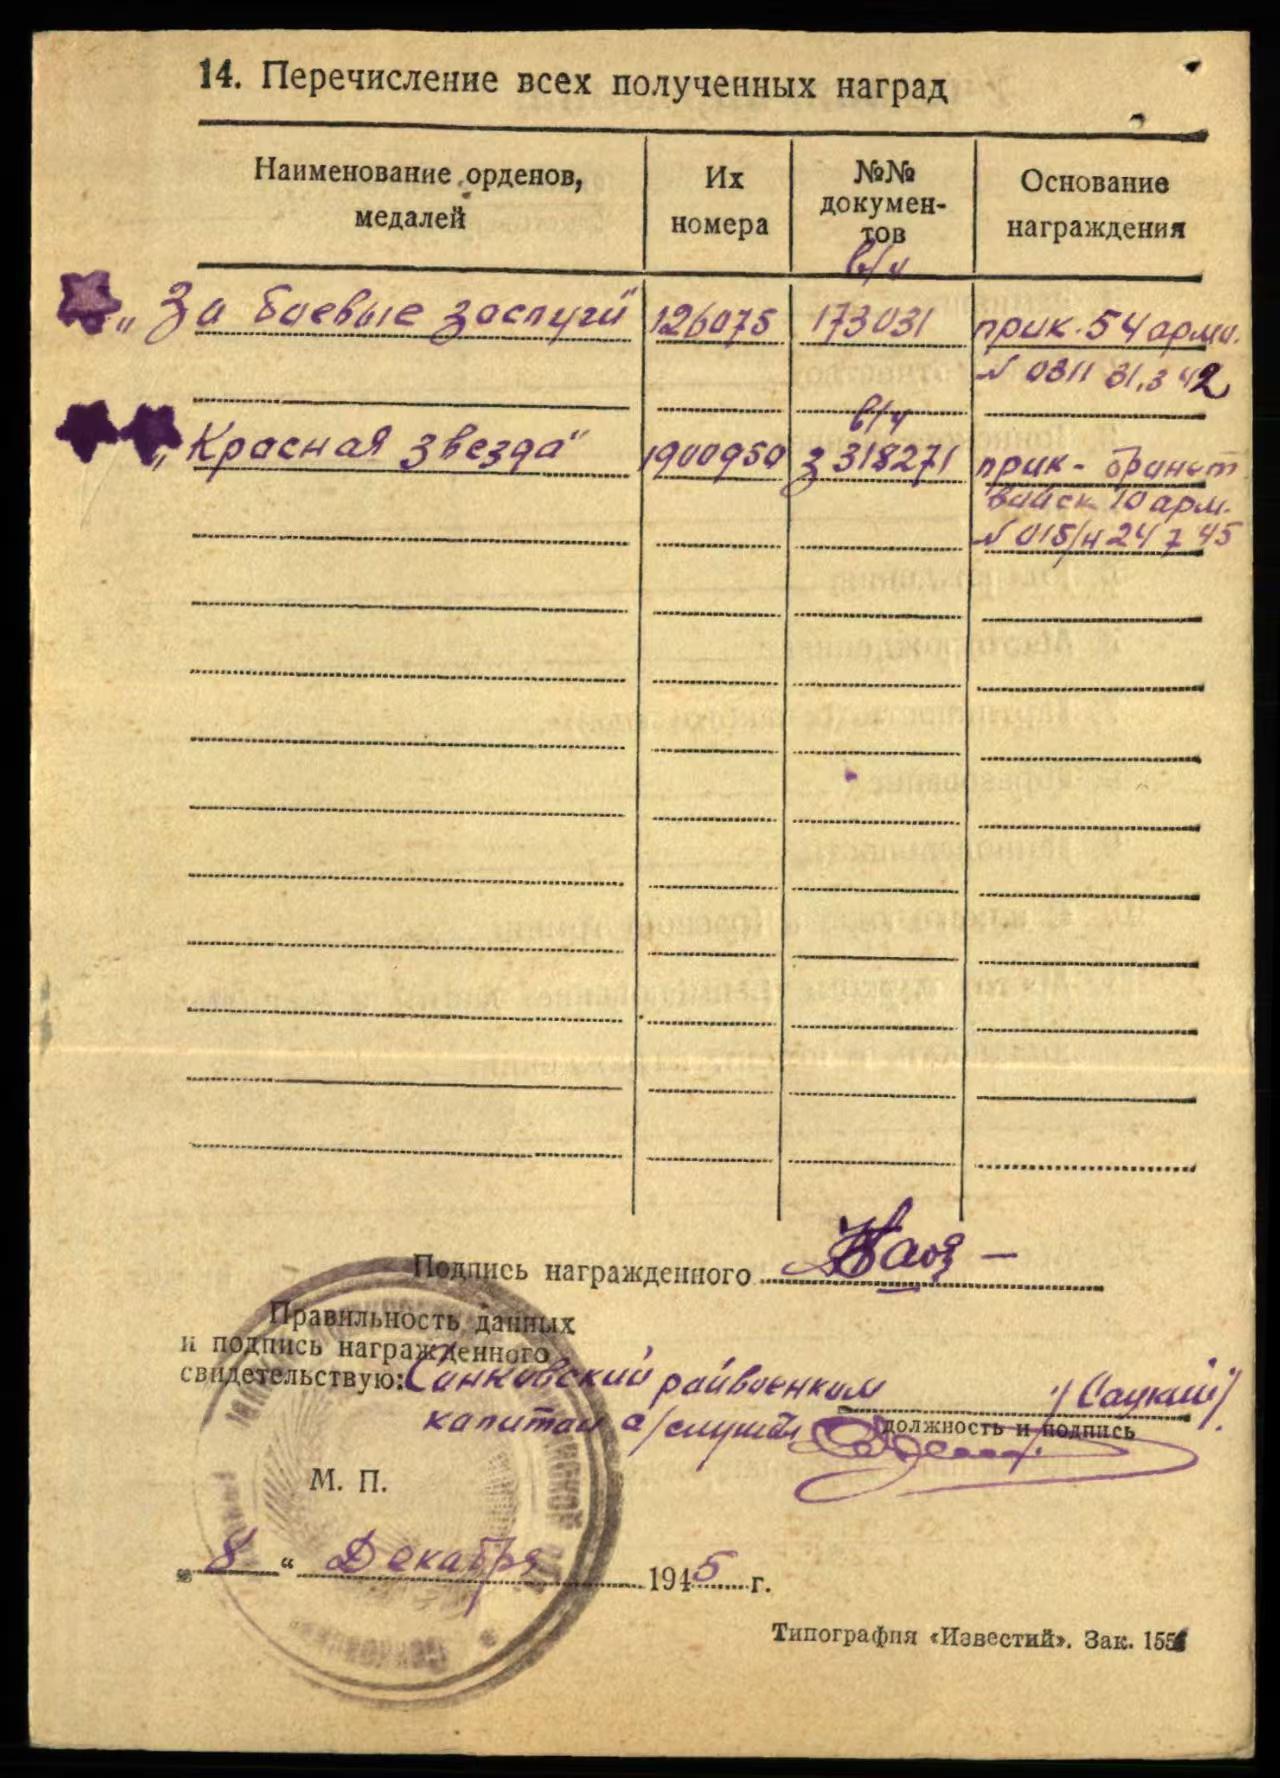 14. Перечисление всех полученных наград
Наименование орденов, медалей
Их номера
№№ документов
Основание награждения
в/ч
„За боевые заслуги“ 126075 173031 прик. 54 арми.
№ 0311 31.3 42
в/ч
„Красная звезда“ 1900950 З 318271 прик-
войск 10 арм.
№ 015/н 24 7 45
Подпись награжденного
Правильность данных
и подпись награжденного
свидетельствую: Сонковский райвоенком /Сацкий/
капитан а/службы
должность и подпись
М. П.
„8“ Декабря 1945 г.
Типография «Известий». Зак. 155